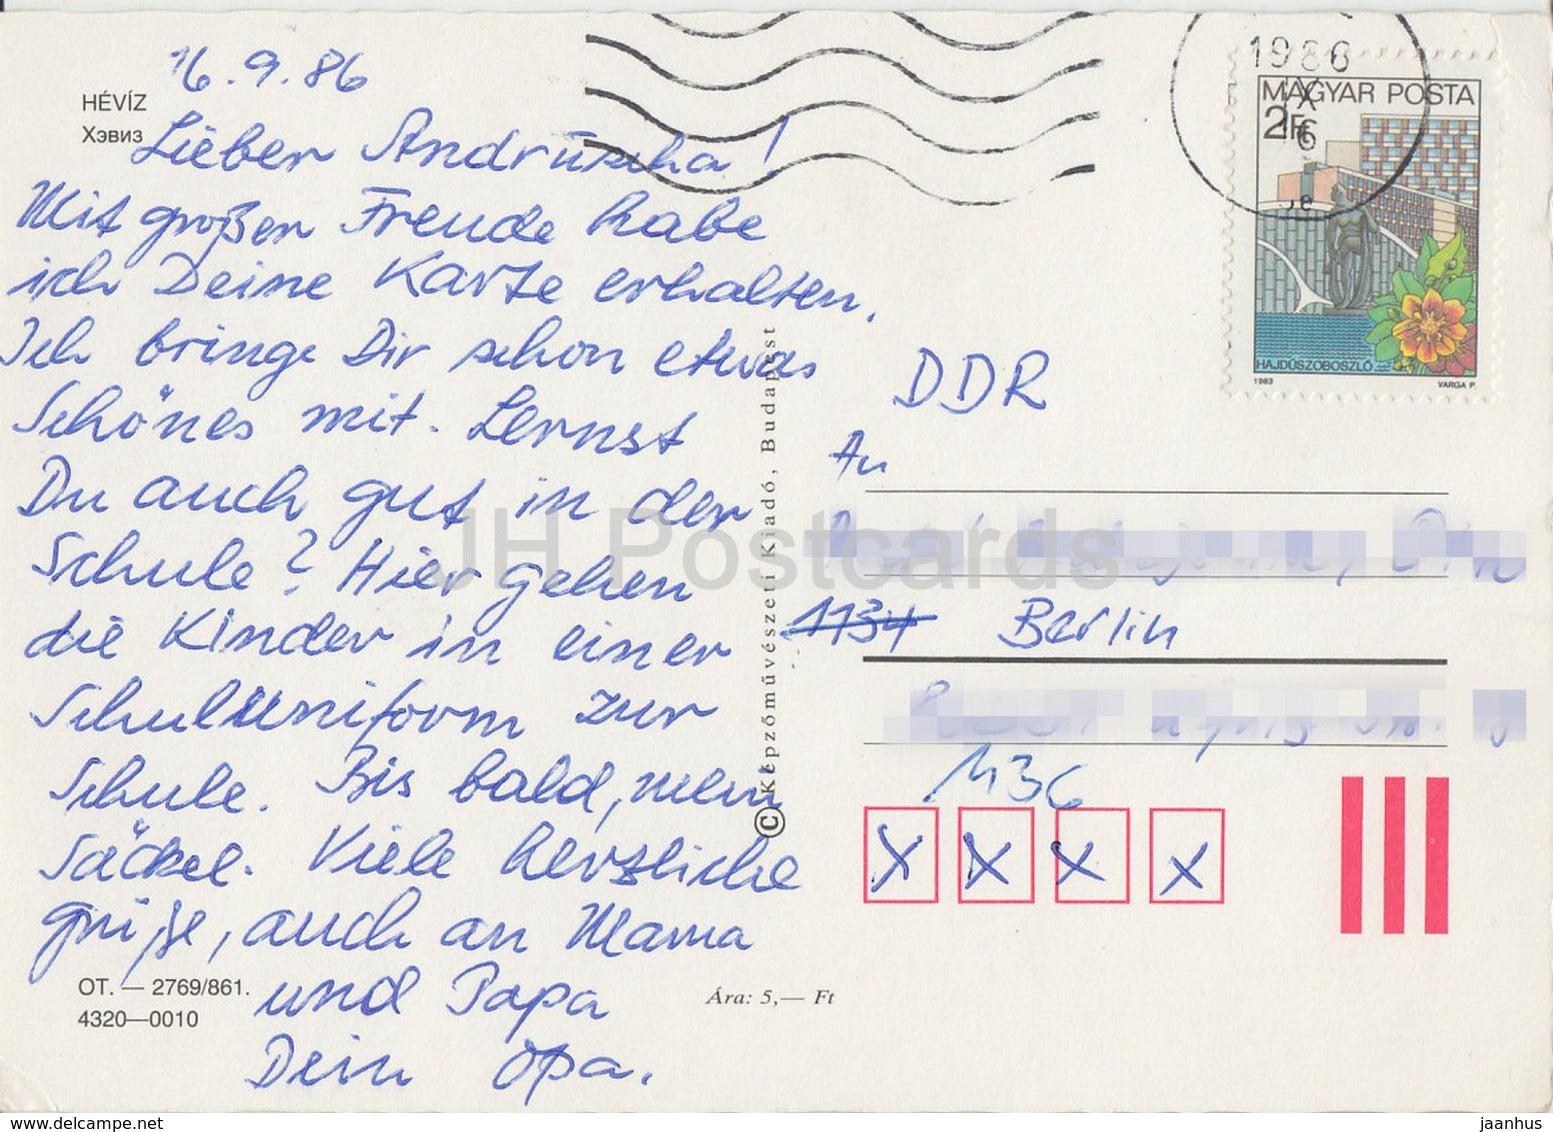 16.9.86
HÉVÍZ
Хэвиз
Lieber Andrüscha!
Mit großen Freude habe
ich Deine Karte erhalten.
Ich bringe Dir schon etwas
Schönes mit. Lernst
Du auch gut in der
Schule? Hier gehen
die Kinder in einer
Schuluniform zur
Schule. Bis bald, mein
Säckel. Viele herzliche
Grüße, auch an Mama
und Papa
Dein Opa.
OT. — 2769/861.
4320—0010
Ára: 5,— Ft
© Képzőművészeti Kiadó, Budapest
1986
X
16
MAGYAR POSTA
2Ft
HAJDÚSZOBOSZLÓ
1983
VARGA P.
DDR
An
1134 Berlin
1136
X X X X
JH Postcards
delcampe.net
jaanhus